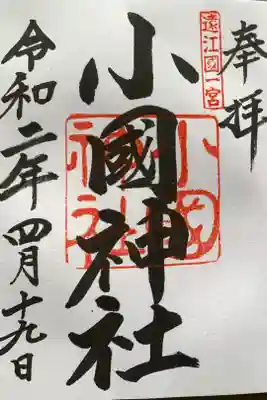 奉拝
遠江國一宮
小國神社
令和二年四月十九日